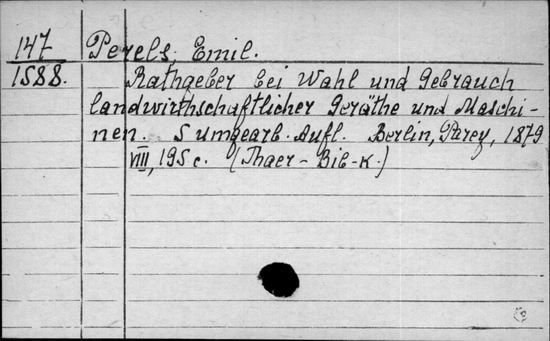 147 Perels, Emil.
1588. Rathgeber bei Wahl und Gebrauch
landwirthschaftlicher Geräthe und Maschi-
nen. 5 umgearb. Aufl. Berlin, Parey, 1879
VIII, 195 c. (Thaer-Bib-k.)